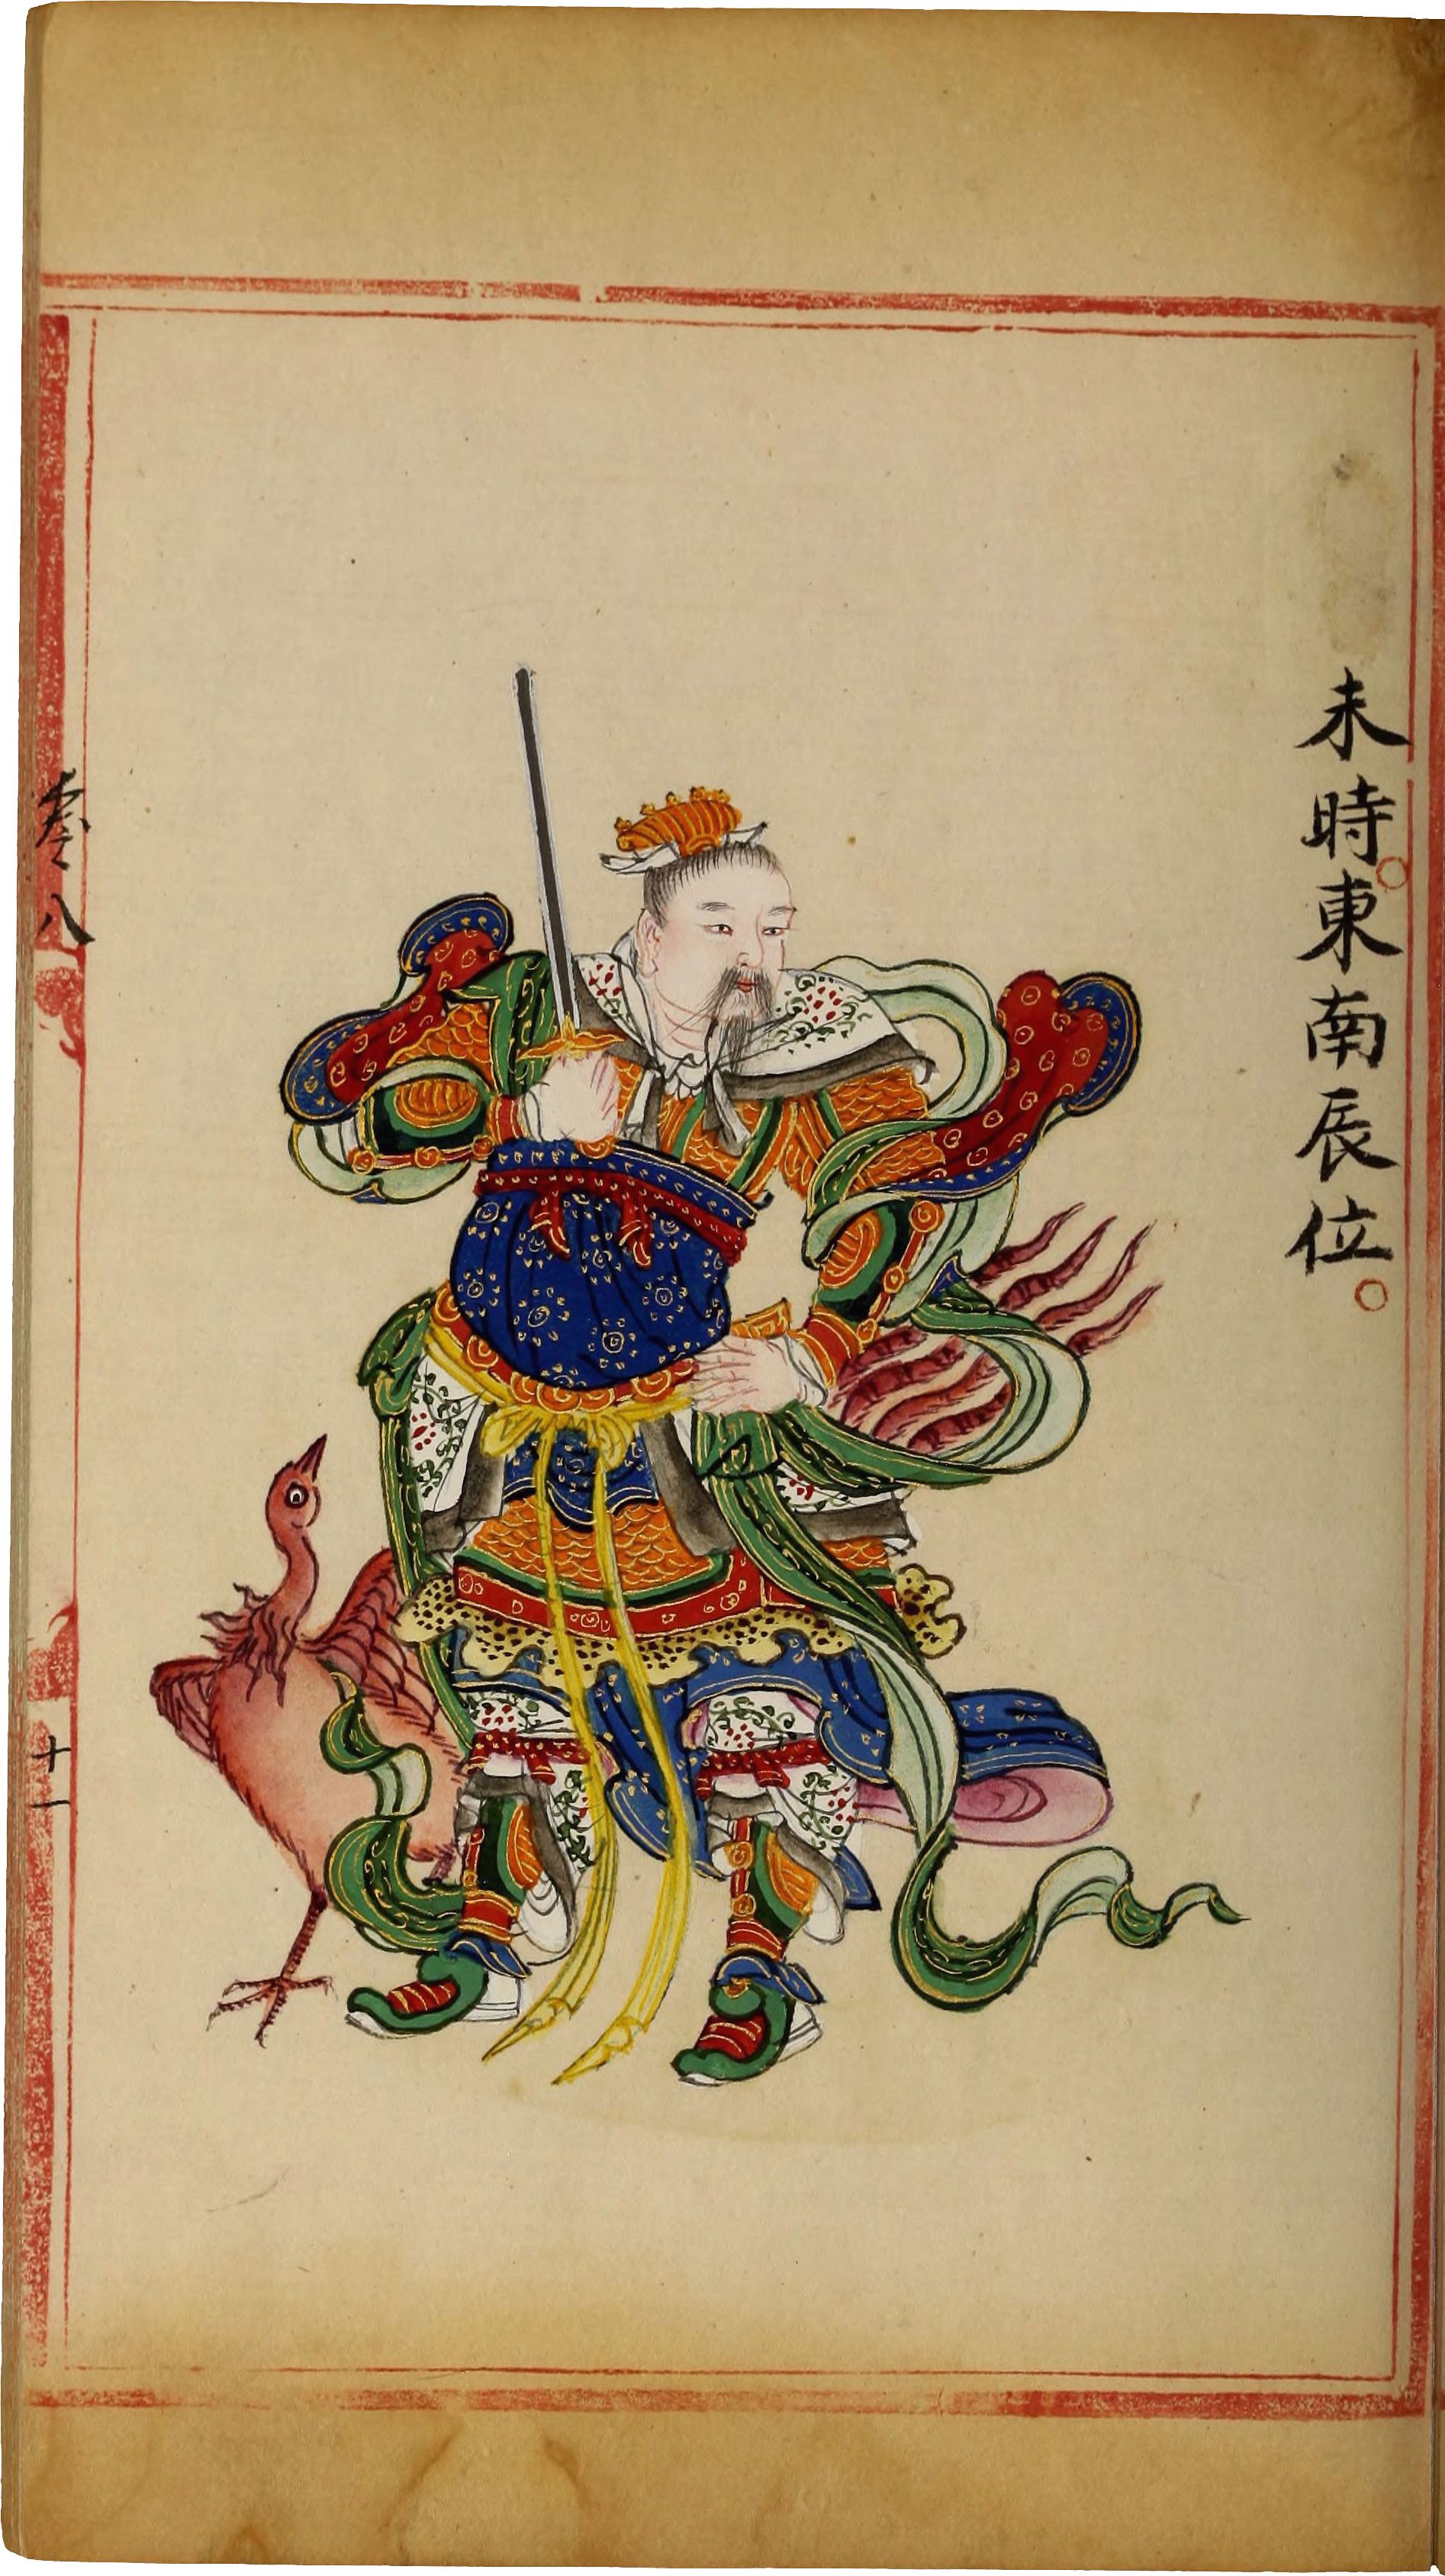 未時東南辰位
卷八
十一